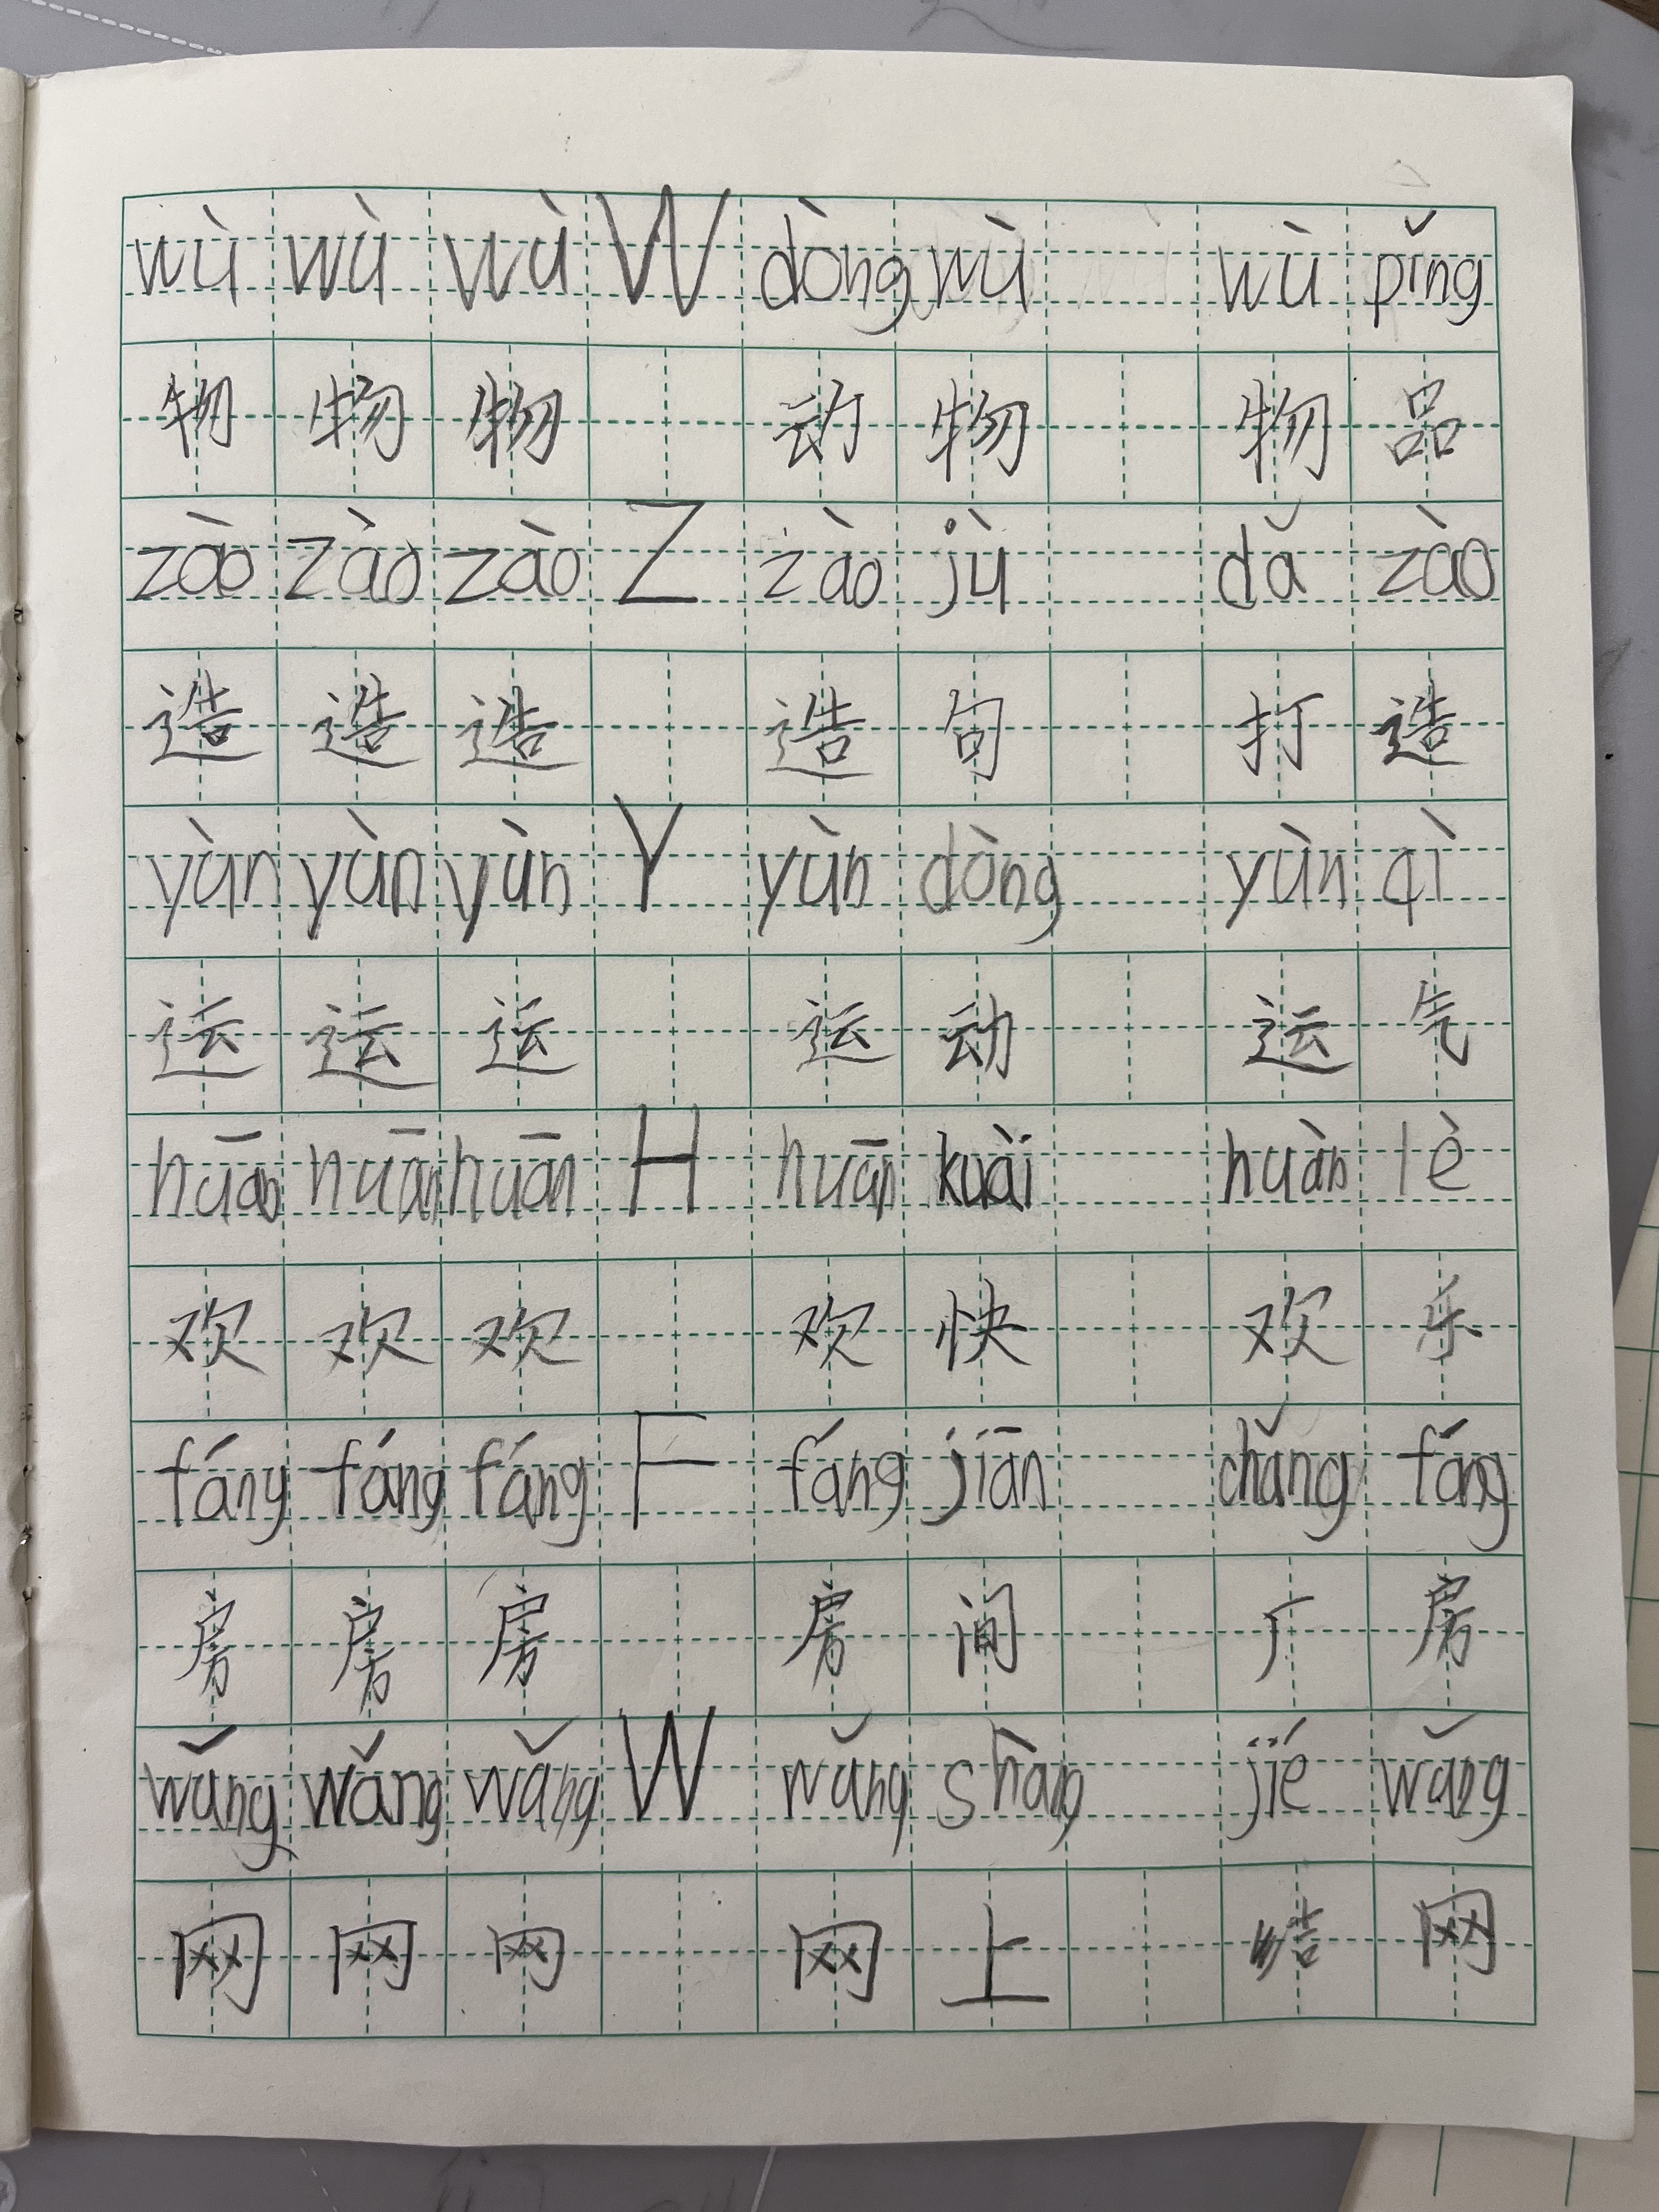 wù wù wù W dòng wù wù pǐng
物 物 物 动 物 物 品
zào zào zào Z zào jù dǎ zào
造 造 造 造 句 打 造
yùn yùn yùn Y yùn dòng yùn qì
运 运 运 运 动 运 气
huān huān huān H huān kuài huàn lè
欢 欢 欢 欢 快 欢 乐
fáng fáng fáng F fáng jiān chǎng fáng
房 房 房 房 间 厂 房
wǎng wǎng wǎng W wǎng shàng jié wǎng
网 网 网 网 上 结 网